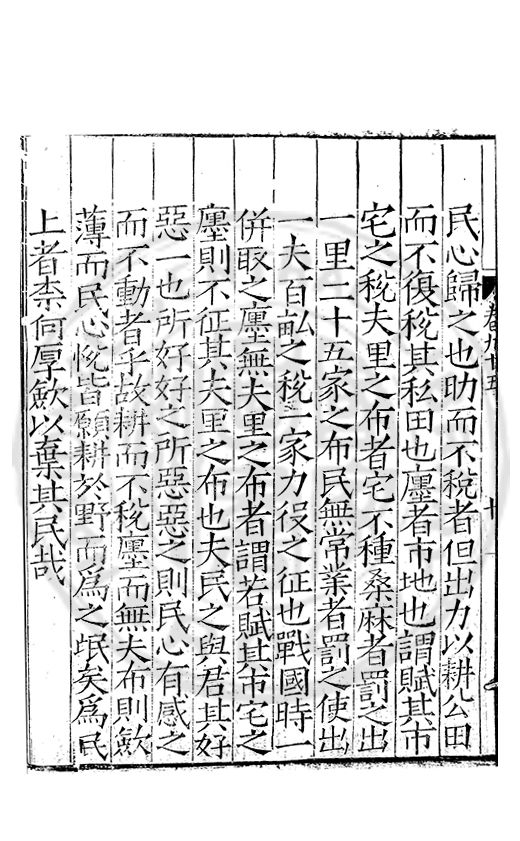 卷九十五
十
民心歸之也助而不稅者但出力以耕公田
而不復稅其私田也廛者市地也謂賦其市
宅之稅夫里之布者宅不種桑麻者罰之出
一里二十五家之布民無常業者罰之使出
一夫百畝之稅一家力役之征也戰國時一
併取之廛無夫里之布者謂若賦其市宅之
廛則不征其夫里之布也夫民之與君其好
惡一也所好好之所惡惡之則民心有感之
而不動者乎故耕而不稅廛而無夫布則歛
薄而民心悅皆願耕於野而爲之氓矣爲民
上者柰何厚歛以棄其民哉